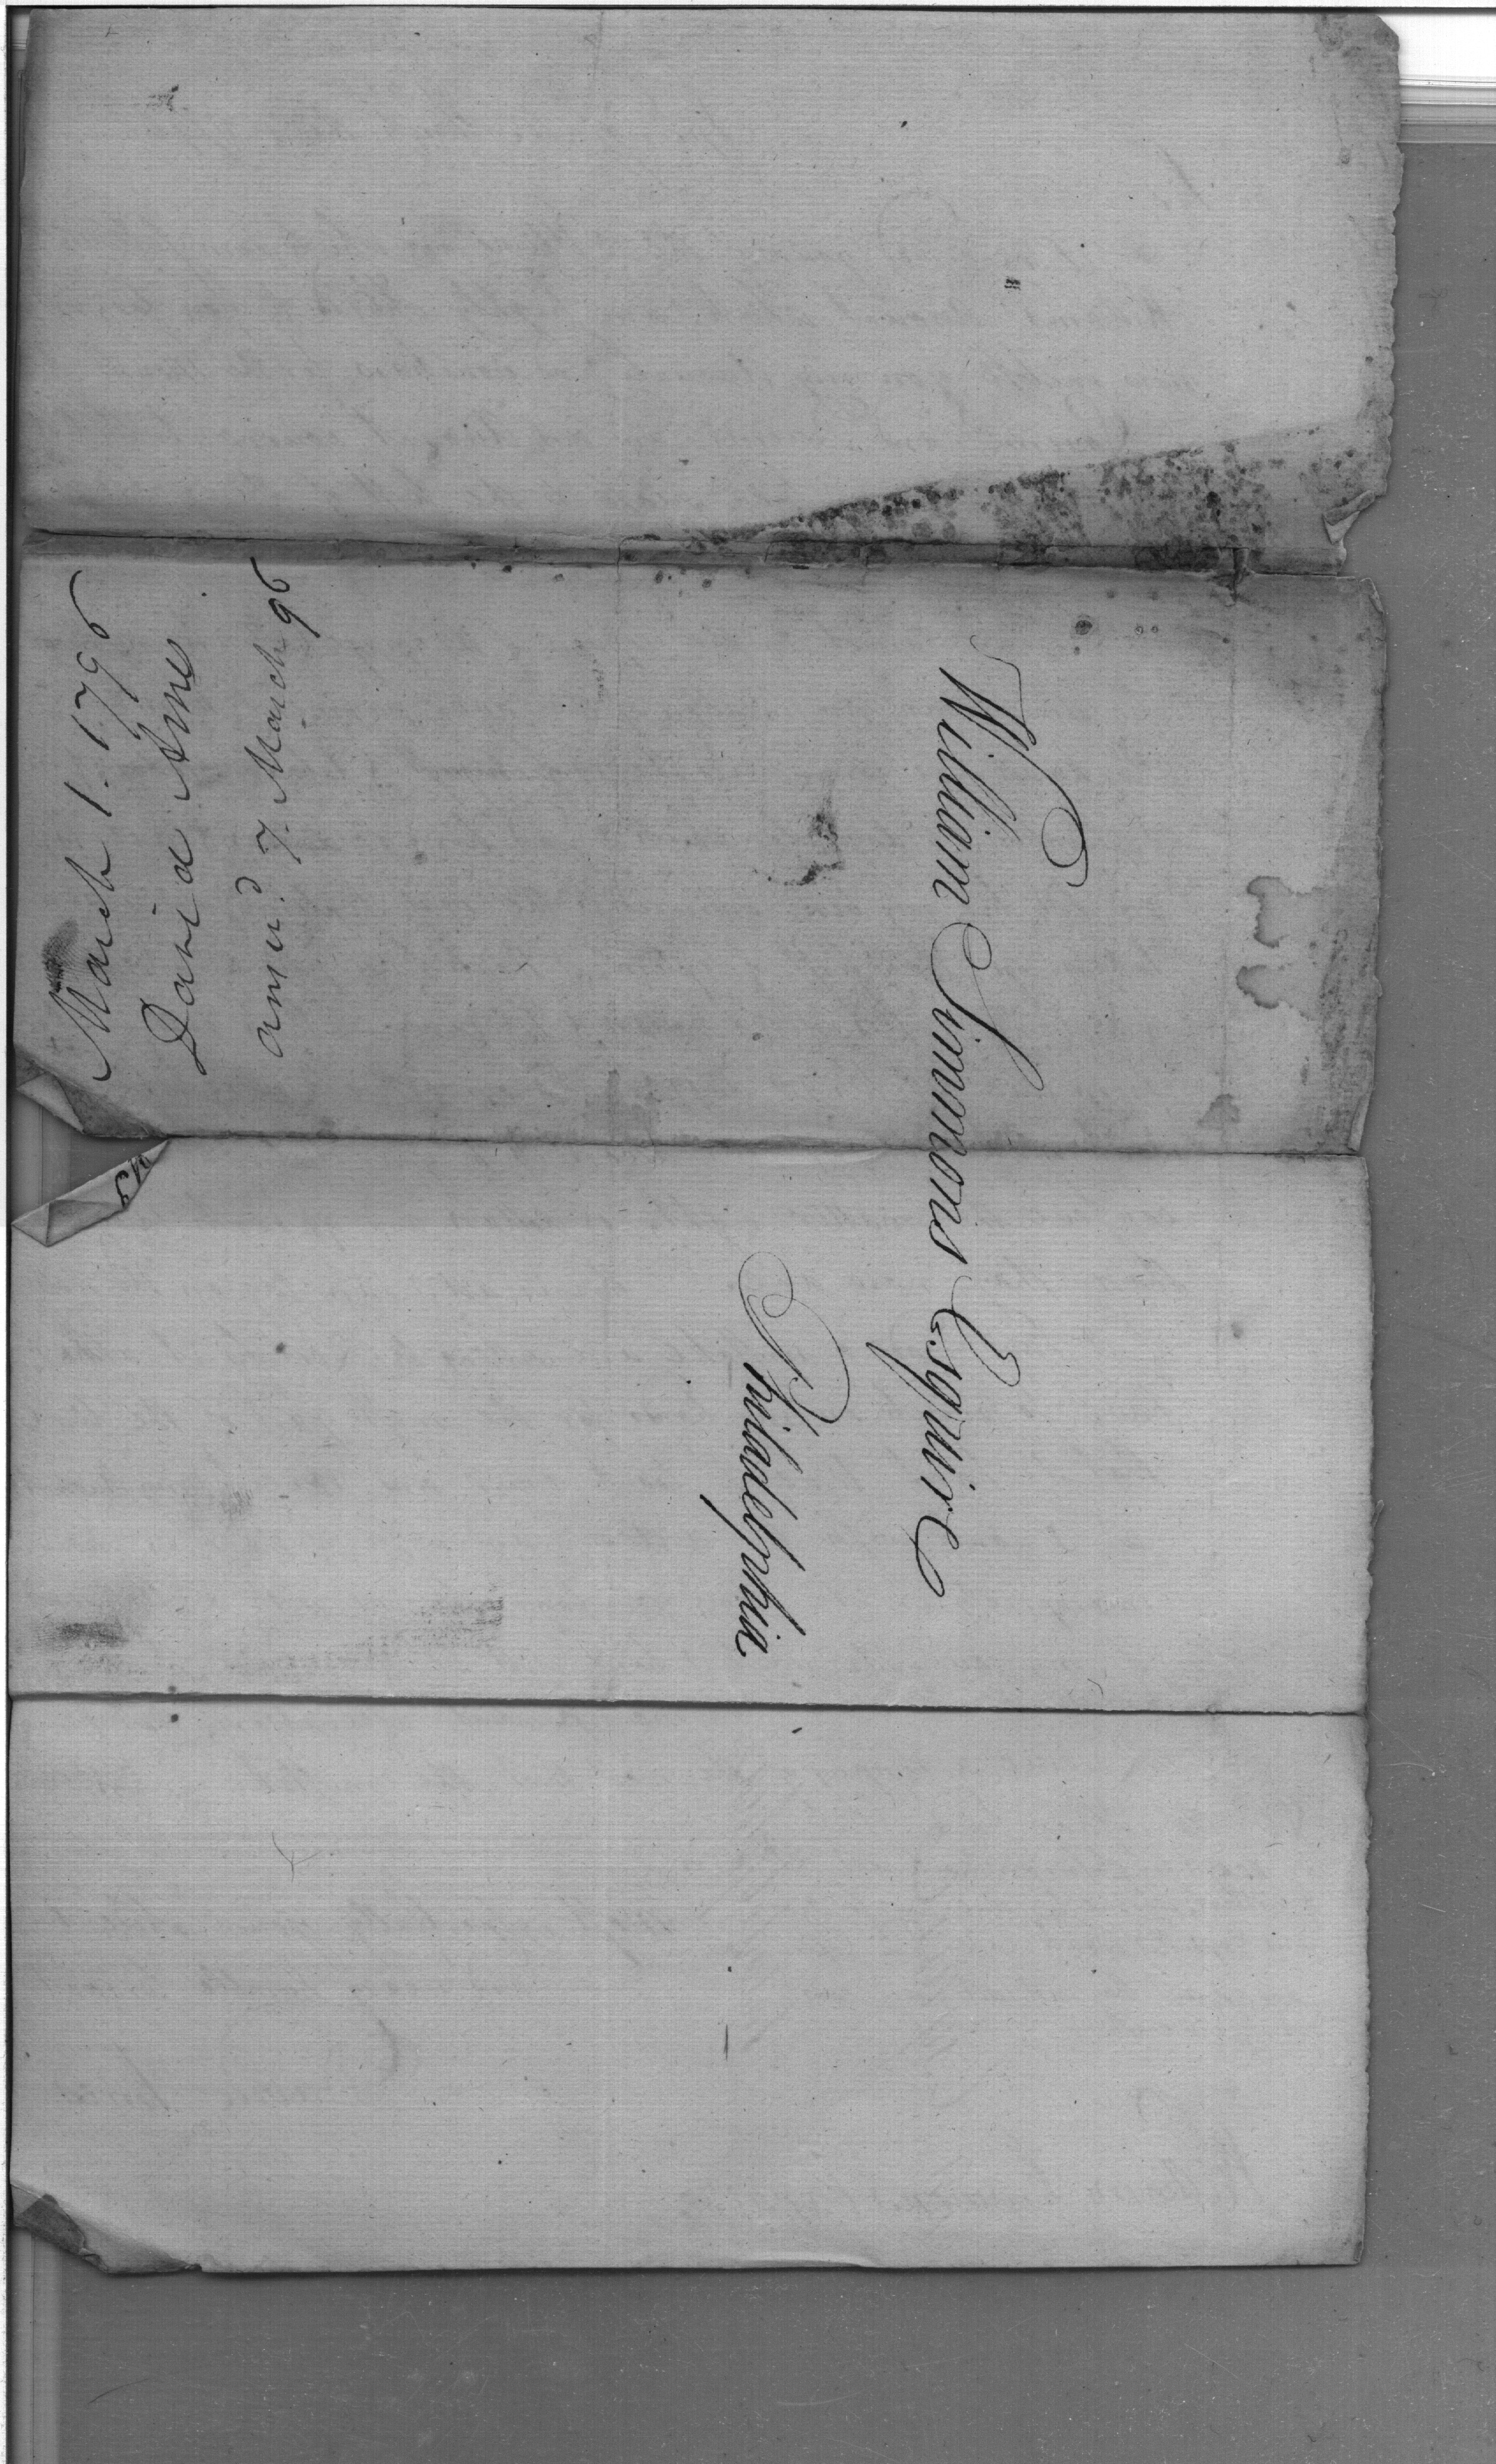 William Simmons Esquire
Philadelphia
March 1. 1796
David Ames
answd. 7. March 96